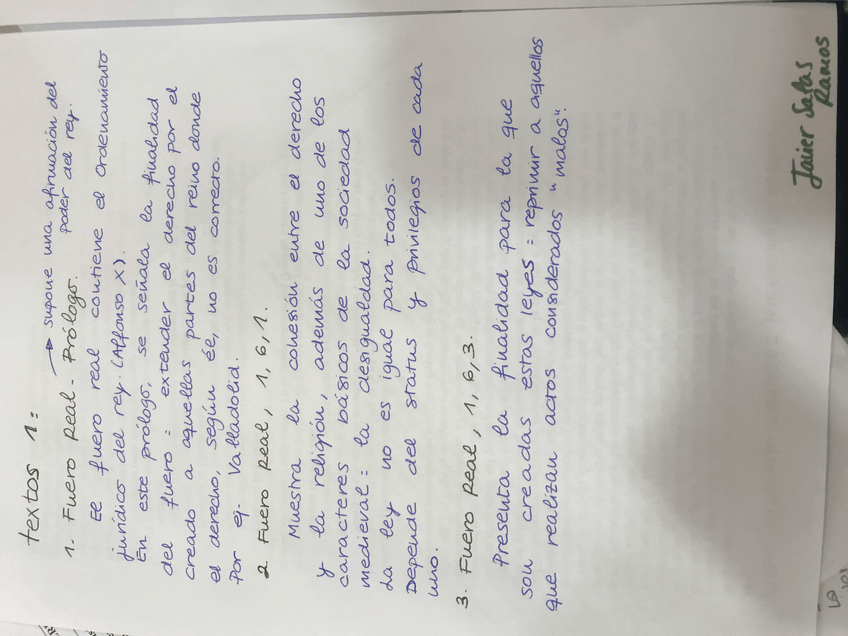 textos 1:
1. Fuero Real - Prólogo. → supone una afirmación del
poder del rey.
El fuero real contiene el ordenamiento
jurídico del rey. (Alfonso X).
En este prólogo, se señala la finalidad
del fuero: extender el derecho por él
creado a aquellas partes del reino donde
el derecho, según él, no es correcto.
Por ej. Valladolid.
2. Fuero Real, 1, 6, 1.
Muestra la cohesión entre el derecho
y la religión, además de uno de los
caracteres básicos de la sociedad
medieval: la desigualdad.
La ley no es igual para todos.
Depende del status y privilegios de cada
uno.
3. Fuero Real, 1, 6, 3.
Presenta la finalidad para la que
son creadas estas leyes: reprimir a aquellos
que realizan actos considerados "malos".
Javier Salas
Ramos